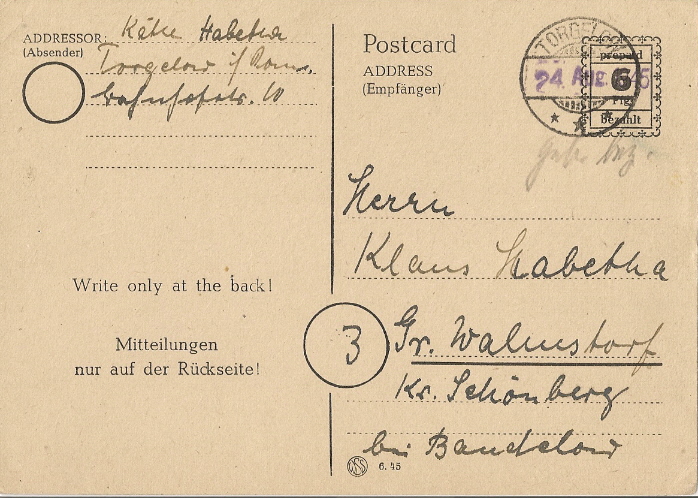 ADDRESSOR: Käthe Habetha
(Absender)
Torgelow i/Pom.
Bahnhofstr. 10
Write only at the back!
Mitteilungen
nur auf der Rückseite!
Postcard
ADDRESS
(Empfänger)
TORGELOW
24. Aug. 45
prepaid
6
Pfg
Bezahlt
Gebr. bez.
Herrn
Klaus Habetha
3
Gr. Walmstorf
Kr. Schönberg
bei Bandelow
6. 45